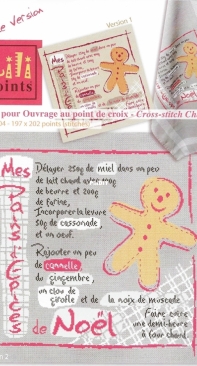 Version
Version 1
Points
pour Ouvrage au point de croix - Cross-stitch Ch
04 - 197 x 202 points (stitches)
Mes
Pains d'Epices
de Noël
Délayer 250g de miel dans un peu
de lait chaud avec
de beurre et 200g
de farine,
Incorporer la levure
50g de cassonade,
et un oeuf.
Rajouter un peu
de cannelle
du gingembre,
un clou de
girofle et de la noix de muscade
Faire cuire
une demi-heure
à four chaud.